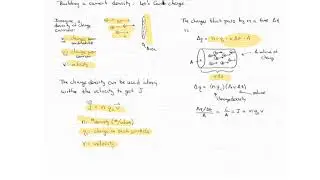 Building a current density - Let's Count charge.
Imagine a density of charge carriers
n: 
q: charge
v: velocity
Area
The charge density can be used along with the velocity to get J
J = n q v
n: # density (#/volume)
q: charge on each particle
v: velocity
The charges that pass by in a time Δt is
Δq = n q · vΔt · A
A volume of charge
vΔt
Δq = (n q)(A v Δt)
charge density
volume
Δq/Δt / A = I/A = J = n q v